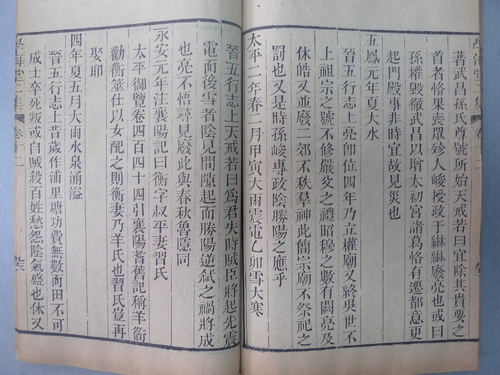 著武昌孫氏尊號所始天戒若曰宜除其貴要之
首者恪果喪眾殄人峻授政于綝綝廢亮也或曰
孫權毀徹武昌以增太初宮諸葛恪有遷都意更
起門殿事非時宜故見災也
五鳳元年夏大水
晉五行志上亮卽位四年乃立權廟又終吳世不
上祖宗之號不修嚴父之禮昭穆之數有闕亮及
休皓又並廢二郊不秩羣神此簡宗廟不祭祀之
罰也又是時孫峻專政陰勝陽之應乎
太平二年春二月甲寅大雨震電乙卯雪大寒
晉五行志上天戒若曰爲君失時賊臣將起先震
電而後雪者陰見間隙起而勝陽逆弒之禍將成
也亮不悟尋見廢此與春秋魯隱同
永安元年注襄陽記曰衡字叔平妻習氏
太平御覽卷四百四十四引襄陽耆舊記稱羊衜
勸衡筮仕以女配之則衡妻乃羊氏也習氏豈再
娶耶
四年夏五月大雨水泉涌溢
晉五行志上昔歲作浦里塘功費無數而田不可
成士卒死叛或自賊殺百姓愁怨陰氣盛也休又
學海堂三集 卷十二